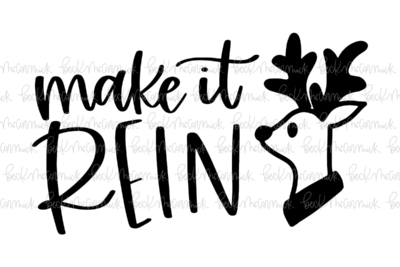 make it
REIN